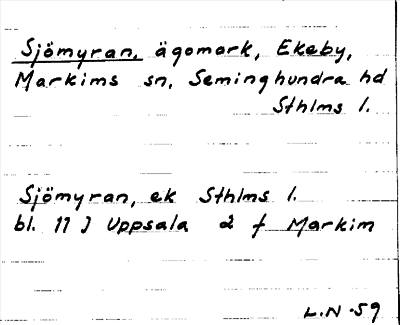 Sjömyran, ägomark, Ekeby,
Markims sn, Seminghundra hd
Sthlms l.
Sjömyran, ek Sthlms l.
bl. 11 J Uppsala 2 f Markim
L.N -59